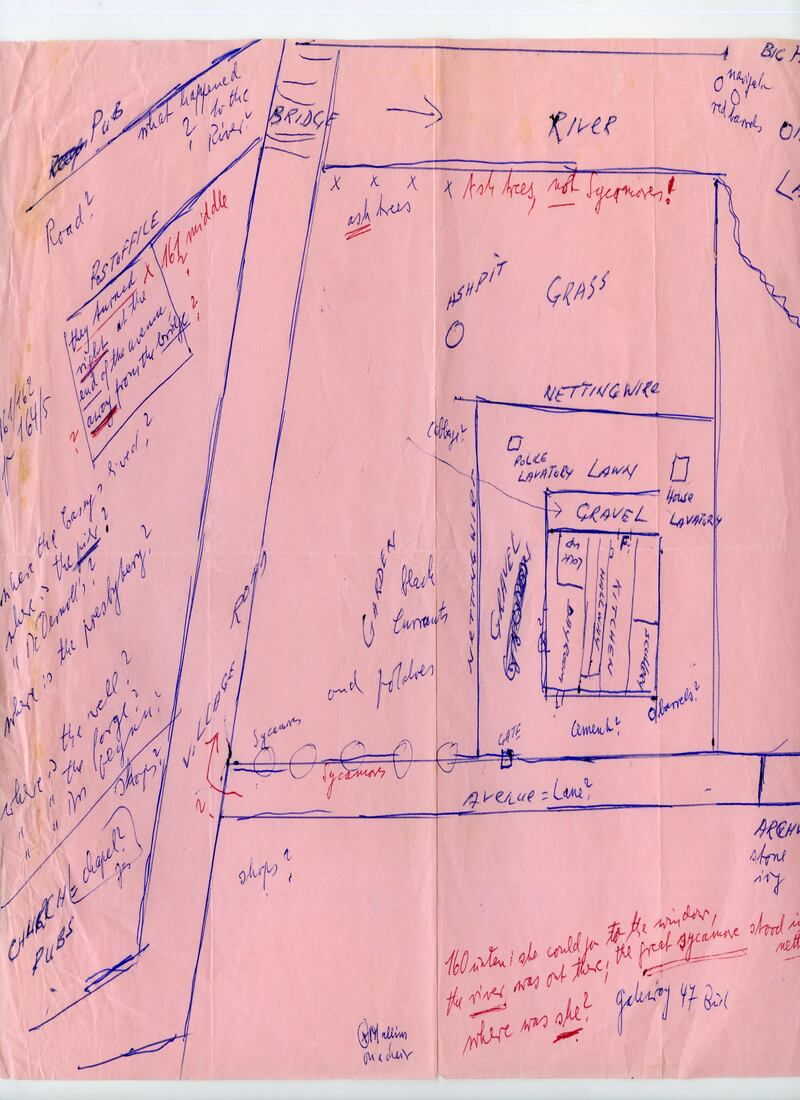 PUB
what happened
? to the
River?
BRIDGE
RIVER
BIG H
navigation
red barrels
Road?
x x x x Ash trees, not Sycamores!
ash trees
POSTOFFICE
x 161 middle
they turned
right at the
end of the avenue
away from the bridge
?
?
161/162
164/5
ASHPIT
GRASS
NETTINGWIRE
Cabbage?
POLICE
LAVATORY
LAWN
House
LAVATORY
GRAVEL
NETTINGWIRE
GRAVEL
DAYROOM
HALLWAY
KITCHEN
SCULLERY
F
GARDEN
black
Currants
and potatoes
barrels?
Cement?
where the Caseys lived?
where is the pier?
" McDermott's?
where is the presbytery?
where is the well?
" " the forge?
" "
" shops?
VILLAGE ROAD
Sycamores
Sycamores
GATE
?
AVENUE = Lane?
ARCHW
stone
ivy
CHURCH = chapel?
yes
PUBS
shops?
160 unten: she could go to the window,
the river was out there, the great sycamore stood i
nett
where was she?
Galway 47
Mullins
on a chair